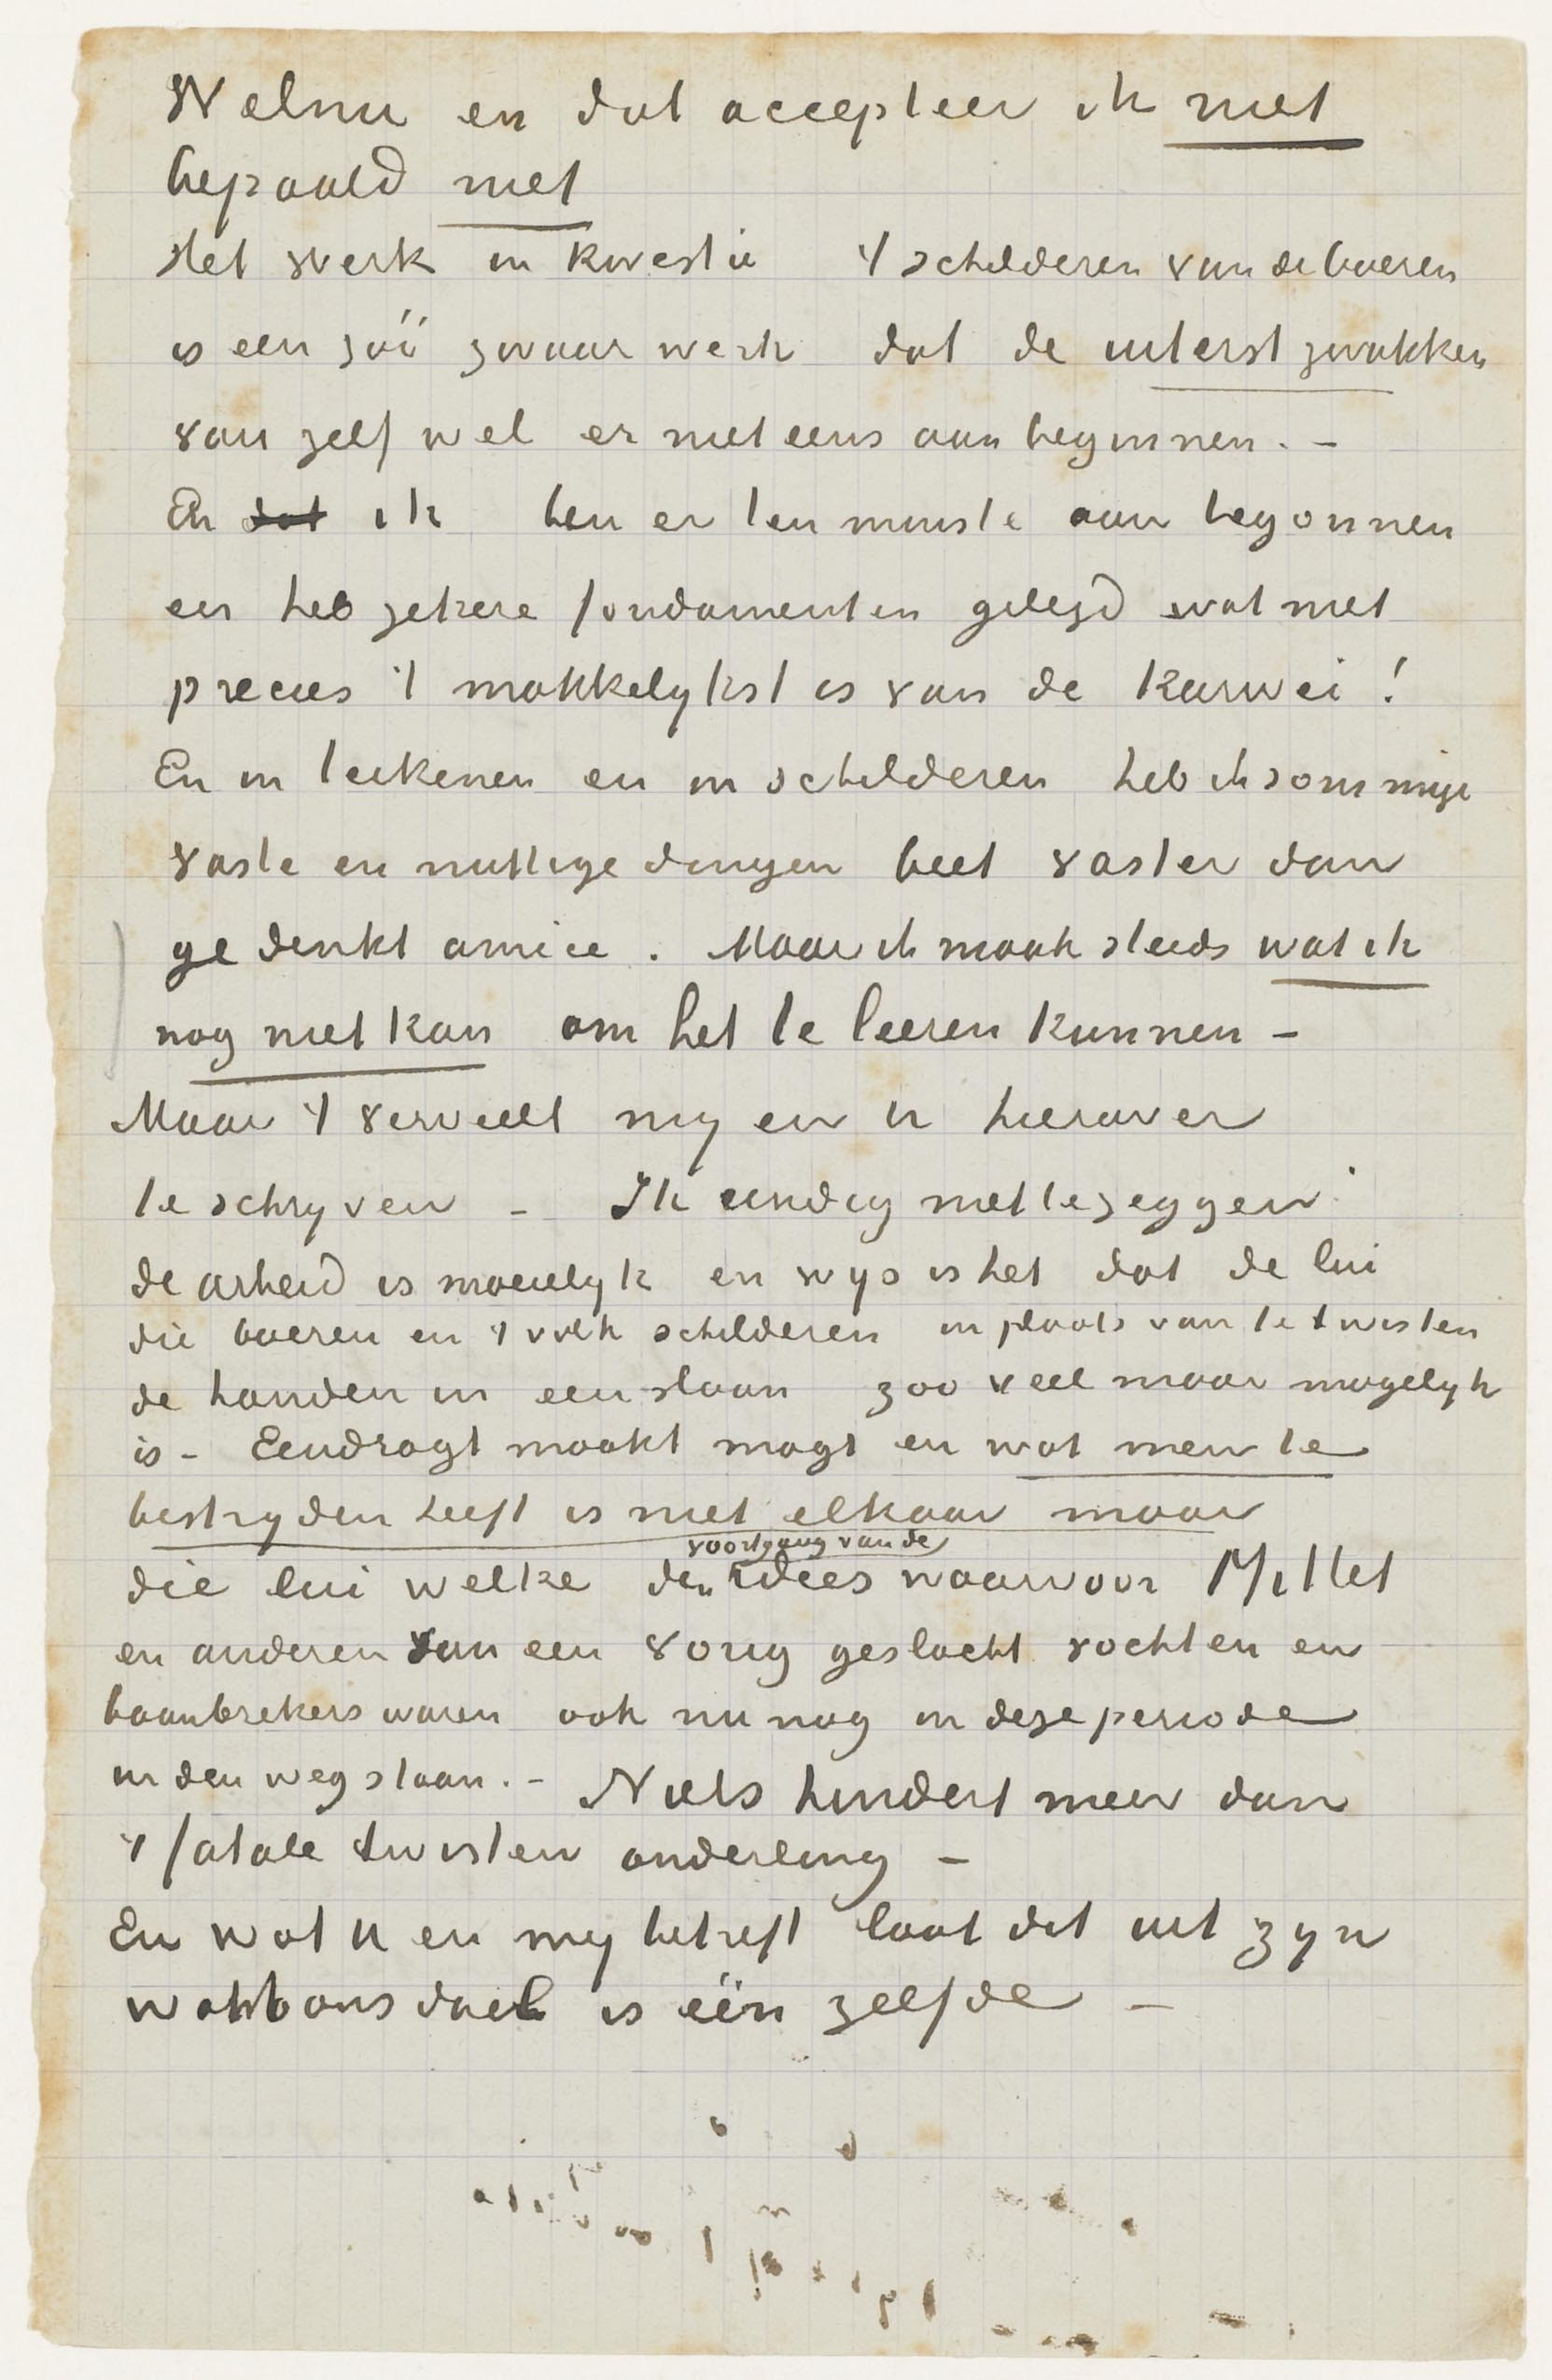 Welnu en dat accepteer ik niet
bepaald niet
Het werk in kwestie 't schilderen van de boeren
is een zoo zwaar werk dat de uiterst zwakken
van zelf wel er niet eens aan beginnen. –
En dat ik ben er ten minste aan begonnen
en heb zekere fondamenten gelegd wat niet
precies 't makkelykst is van de karwei!
En in teekenen en in schilderen heb ik sommige
vaste en nuttige dingen beet vaster dan
ge denkt amice. Maar ik maak steeds wat ik
nog niet kan om het te leeren kunnen –
Maar 't verveelt my en U hierover
te schryven – Ik eindig met te zeggen
de arbeid is moeielyk en wys is het dat de lui
die boeren en 't volk schilderen in plaats van te twisten
de handen in een slaan zoo veel maar mogelyk
is – Eendragt maakt magt en wat men te
bestryden heeft is niet elkaar maar
voortgang van de
die lui welke den idees waarvoor Millet
en anderen van een vorig geslacht vochten en
baanbrekers waren ook nu nog in deze periode
in den weg staan. – Niets hindert meer dan
't fatale twisten onderling –
En wat U en my betreft laat dit uit zyn
want ons doel is één zelfde –